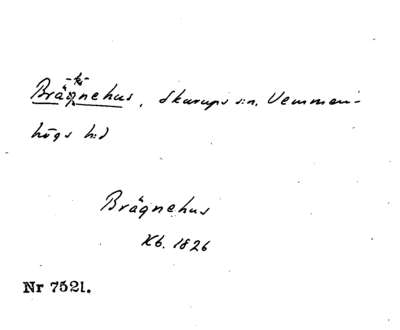 -k-
Brägnehus, Skurups sn, Vemmen-
högs hd
Brägnehus
Kb. 1826
Nr 7521.